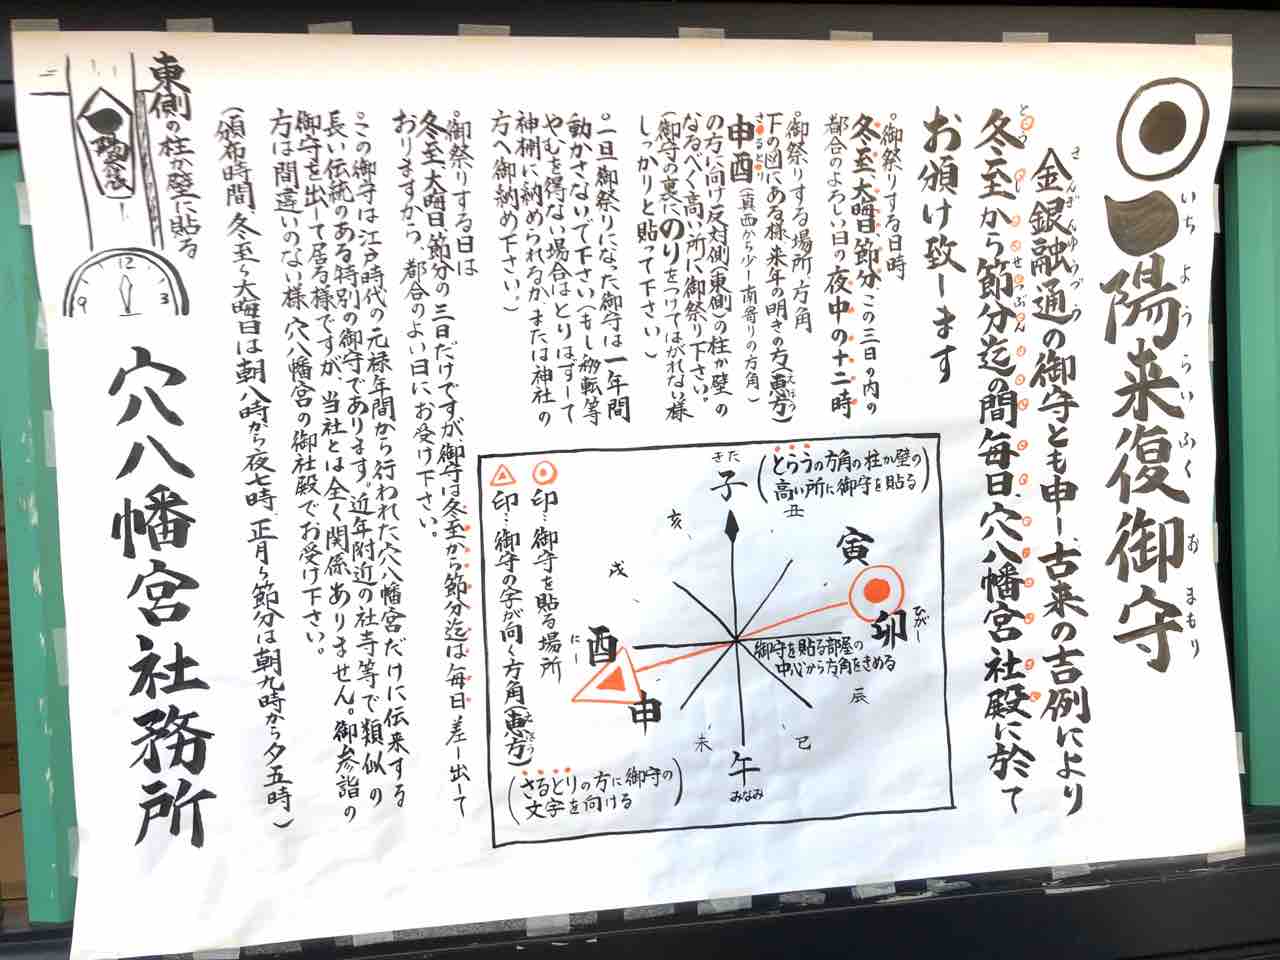 一陽来復御守
いちようらいふくおまもり
金銀融通の御守とも申し、古来の吉例により
きんぎんゆうづう
冬至から節分迄の間毎日、穴八幡宮社殿に於て
とうじ
せつぶん
お頒け致します
◦御祭りする日時
冬至、大晦日、節分、この三日の内の
都合のよろしい日の夜中の十二時
◦御祭りする場所、方角
下の図にある様、来年の明きの方(恵方)
えほう
申酉(真西から少し南寄りの方角)
さるとり
の方に向け反対側(東側)の柱か壁の
なるべく高い所に御祭り下さい。
(御守の裏にのりをつけてはがれない様
しっかりと貼って下さい)
◦一旦御祭りになった御守は一年間
動かさないで下さい(もし移転等
やむを得ない場合はとりはずして
神棚に納められるか、または神社の
方へ御納め下さい。)
◦御祭りする日は
冬至、大晦日、節分の三日だけですが御守は冬至から節分迄は毎日差し出して
おりますから、都合のよい日にお受け下さい。
◦この御守は江戸時代の元禄年間から行われた穴八幡宮だけに伝来する
長い伝統のある特別の御守であります。近年附近の社寺等で類似の
御守を出して居る様ですが、当社とは全く関係ありません。御参詣の
方は間違いのない様、穴八幡宮の御社殿でお受け下さい。
(頒布時間、冬至〜大晦日は朝八時から夜七時 正月〜節分は朝九時から夕五時)
東側の柱か壁に貼る
12
3
9
穴八幡宮社務所
(とらうの方角の柱か壁の
高い所に御守を貼る)
きた
子
丑
寅
卯
ひがし
辰
巳
午
みなみ
未
申
酉
にし
戌
亥
御守を貼る部屋の
中心から方角をきめる
印…御守を貼る場所
印…御守の字が向く方角(恵方)
えほう
(さるとりの方に御守の
文字を向ける)